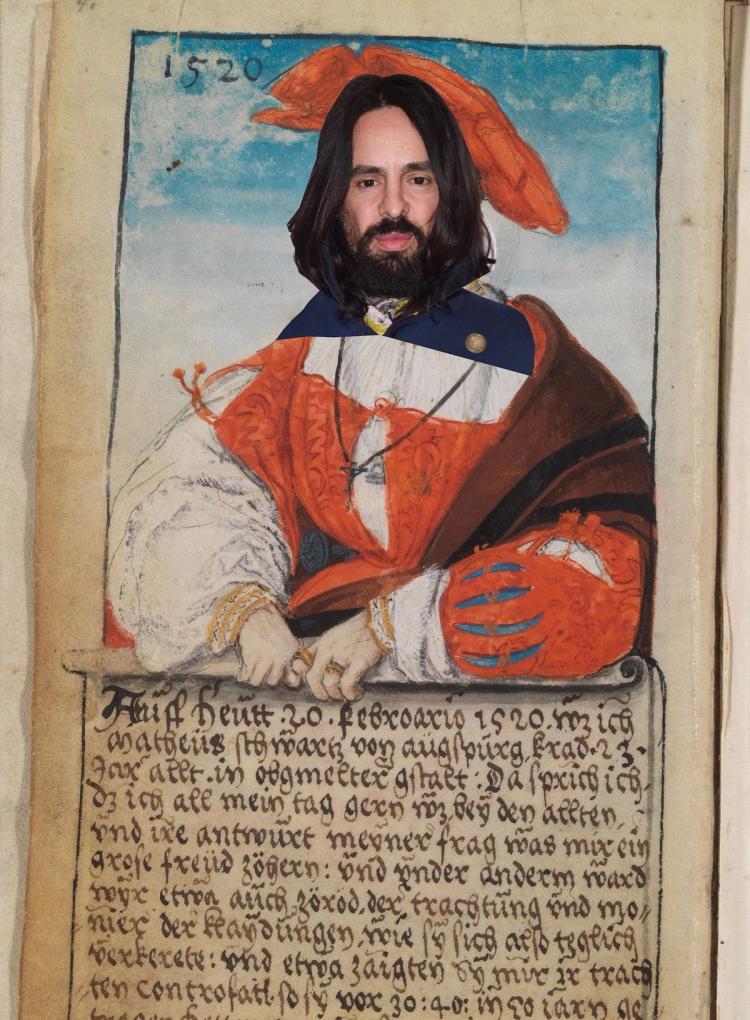 1520
Auff heütt 20. febroario 1520. wz ich
Matheüs schwartz von augspürg, krad 23.
Jar allt in obgmelter gstalt: Da sprich ich,
dz ich all mein tag gern wz bey den allten,
ünd ire antwürt meyner frag was mir ein
grose freüd zöhern: ünd ünder anderm ward
wyr etwa aüch zöröd, der trachtüng ünd mo=
nier der klaydüngen, wie sÿ sich also teglich
verkerete: ünd etwa zaigten sÿ mir ir trach
ten controfatt, so sÿ vor 30: 40: in 50 iarn ge